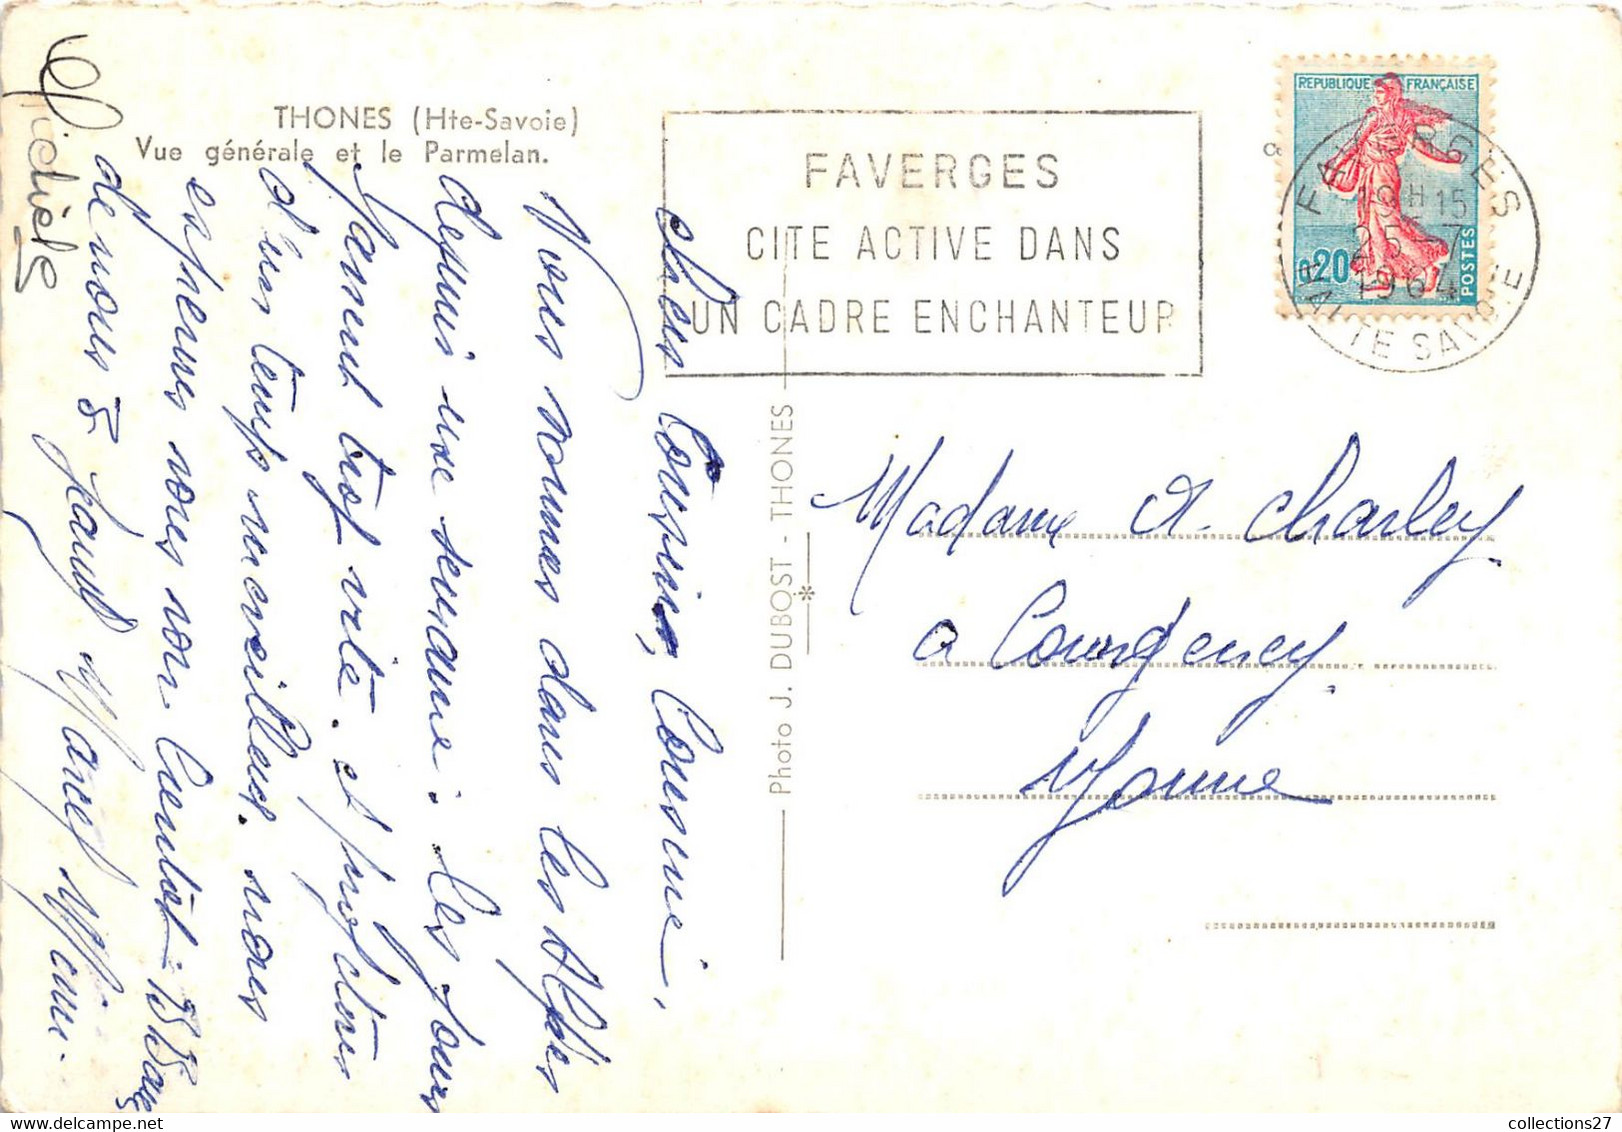 THONES (Hte-Savoie)
Vue générale et le Parmelan.
Chers Cousins, Cousine,
Nous sommes dans les Alpes
depuis une semaine. Les jours
passent trop vite. et profitons
d'un temps merveilleux. nous
espérons vous voir bientôt. Bs Baisers
de nous 5. Jean Marcel Mémé.
Michèle
Photo J. DUBOST - THONES
FAVERGES
CITE ACTIVE DANS
UN CADRE ENCHANTEUR
REPUBLIQUE FRANÇAISE
0,20
POSTES
FAVERGES
19H15
25-7
1964
HAUTE SAVOIE
Madame A. Charley
a Courgenay
Yonne
collections27